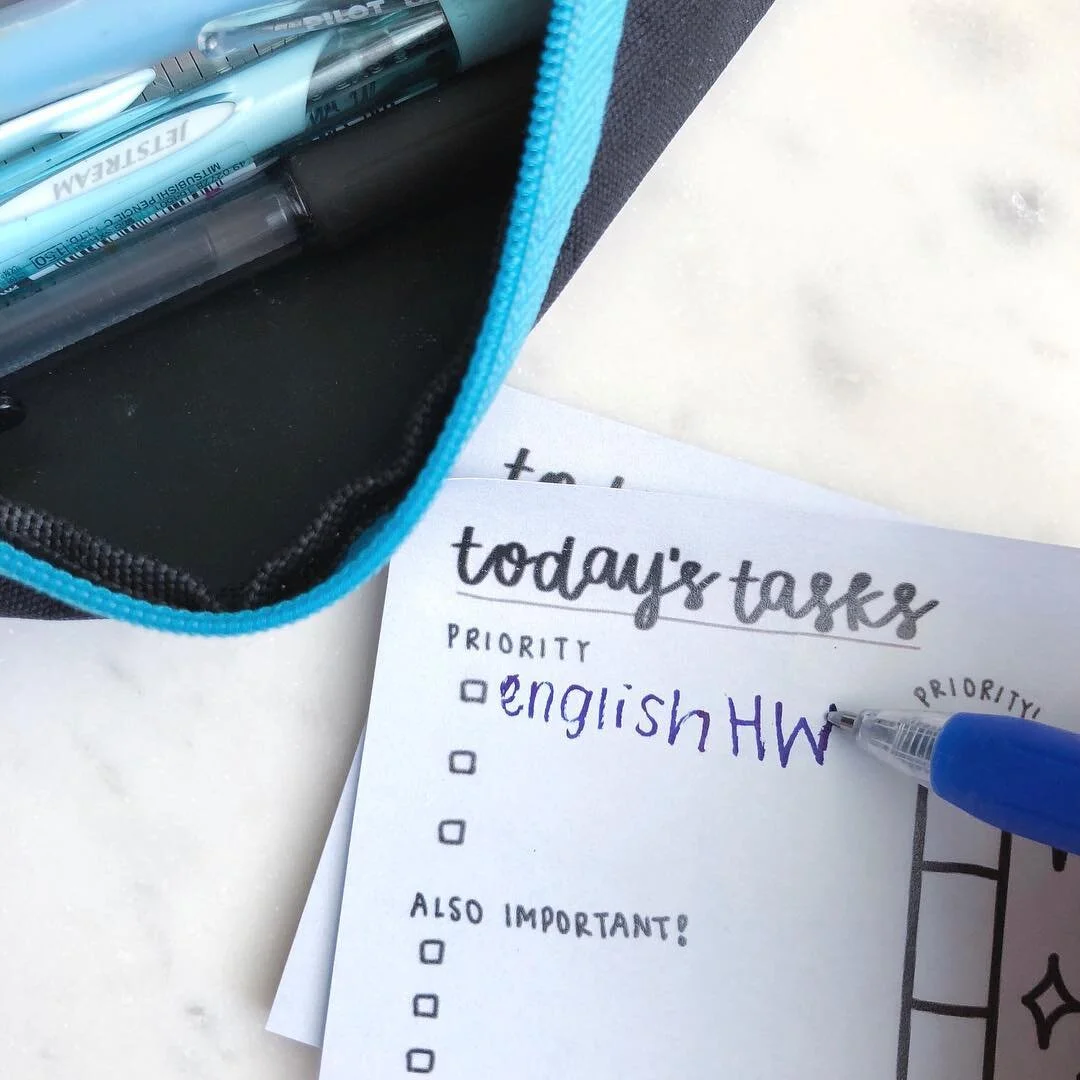 PILOT
JETSTREAM
MITSUBISHI PENCIL CO., LTD.
today's tasks
PRIORITY
english HW
PRIORITY!
ALSO IMPORTANT!